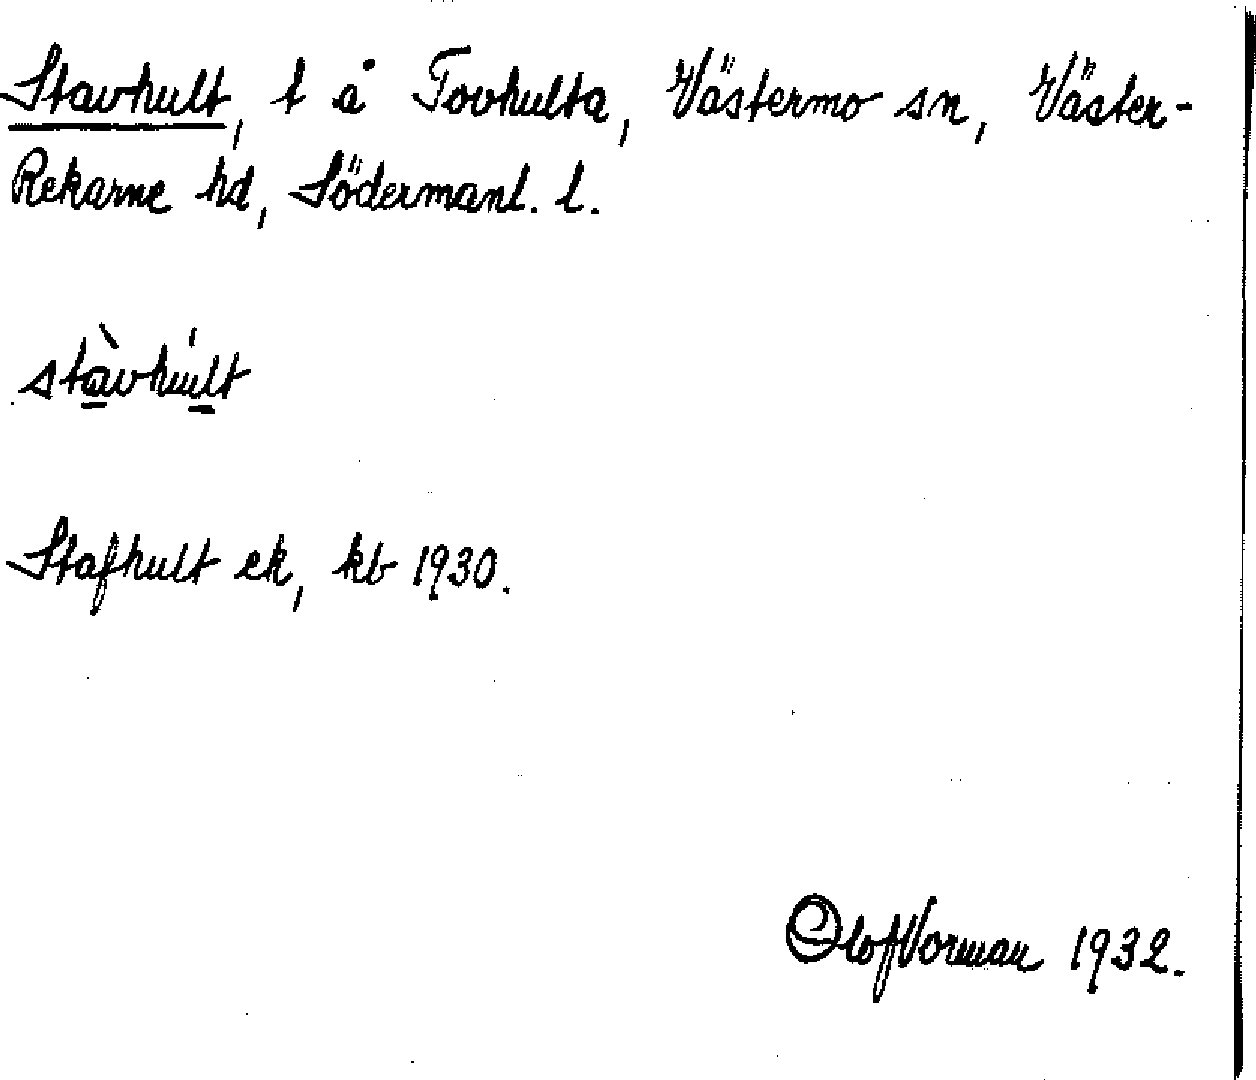 Stavhult, t å Tovhulta, Västermo sn, Väster-
Rekarne hd, Södermanl. l.
stàvhúlt
Stafhult ek, kb 1930.
Olof Vorman 1932.